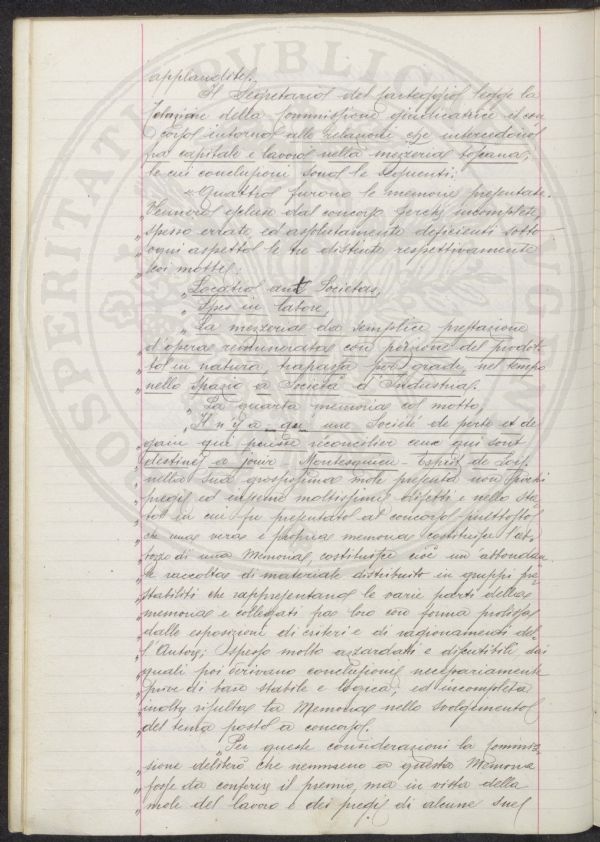 applaudite.
Il Segretario del carteggio legge la
Relazione della Commissione giudicatrice il con
corso intorno alle relazioni che intercedono
fra capitale e lavoro nella mezzeria toscana,
le cui conclusioni sono le seguenti:
"Quattro furono le memorie presentate.
"Vennero escluse dal concorso perchè incomplete,
"spesso errate, ed assolutamente deficienti sotto
"ogni aspetto le tre distinte respettivamente
"coi motti:
"Locatio ant Societas,
"Spes in labore,
"La mezzeria da semplice prestazione
"d'opera remunerata con porzione del prodot-
"to in natura, trapassa per gradi, nel tempo
"nello spazio a Società d'Industria.
"La quarta memoria col motto,
"Il n'y a qu'une Société de perte et de
"gain qui puisse réconcilier ceux qui sont
"destinés a jouir Montesquieu - Esprit de Lois.
"nella sua grossissima mole presenta non pochi
"pregi ed insieme moltissimi difetti e nello sta-
"to in cui fu presentato al concorso piuttosto
"che una vera e propria memoria costituisce l'ab-
"bozzo di una Memoria costituisce cioè un'abbondan
"te raccolta di materiale distribuito in gruppi pre
"stabiliti che rappresentano le varie parti della
"memoria e collegati fra loro con forma prolissa
"dalle esposizioni di criteri e di ragionamenti del-
"l'Autore; spesso molto azzardati e discutibili dai
"quali poi derivano conclusioni necessariamente
"prive di base stabile e logica; ed incompleta
"inoltre risulta la Memoria nello svolgimento
"del tema posto a concorso.
"Per queste considerazioni la Commis-
"sione deliberò che nemmeno a questa Memoria
"fosse da conferire il premio, ma in vista della
"mole del lavoro e dei pregi di alcune sue
PROSPERITATI PUBLICAE